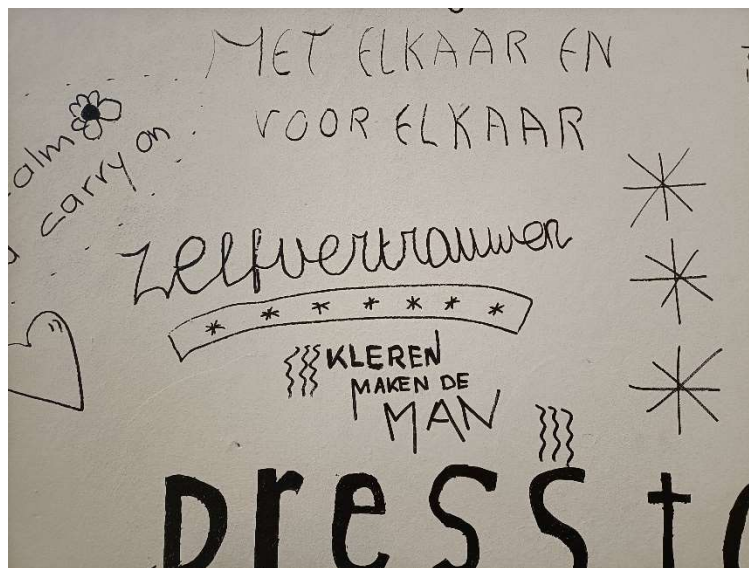 MET ELKAAR EN
VOOR ELKAAR
carry on
zelfvertrouwen
KLEREN
MAKEN DE
MAN